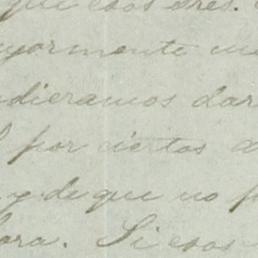 que esos sres.
ayormente
dieramos dar
por ciertas
y de que no p
ora. Si esos